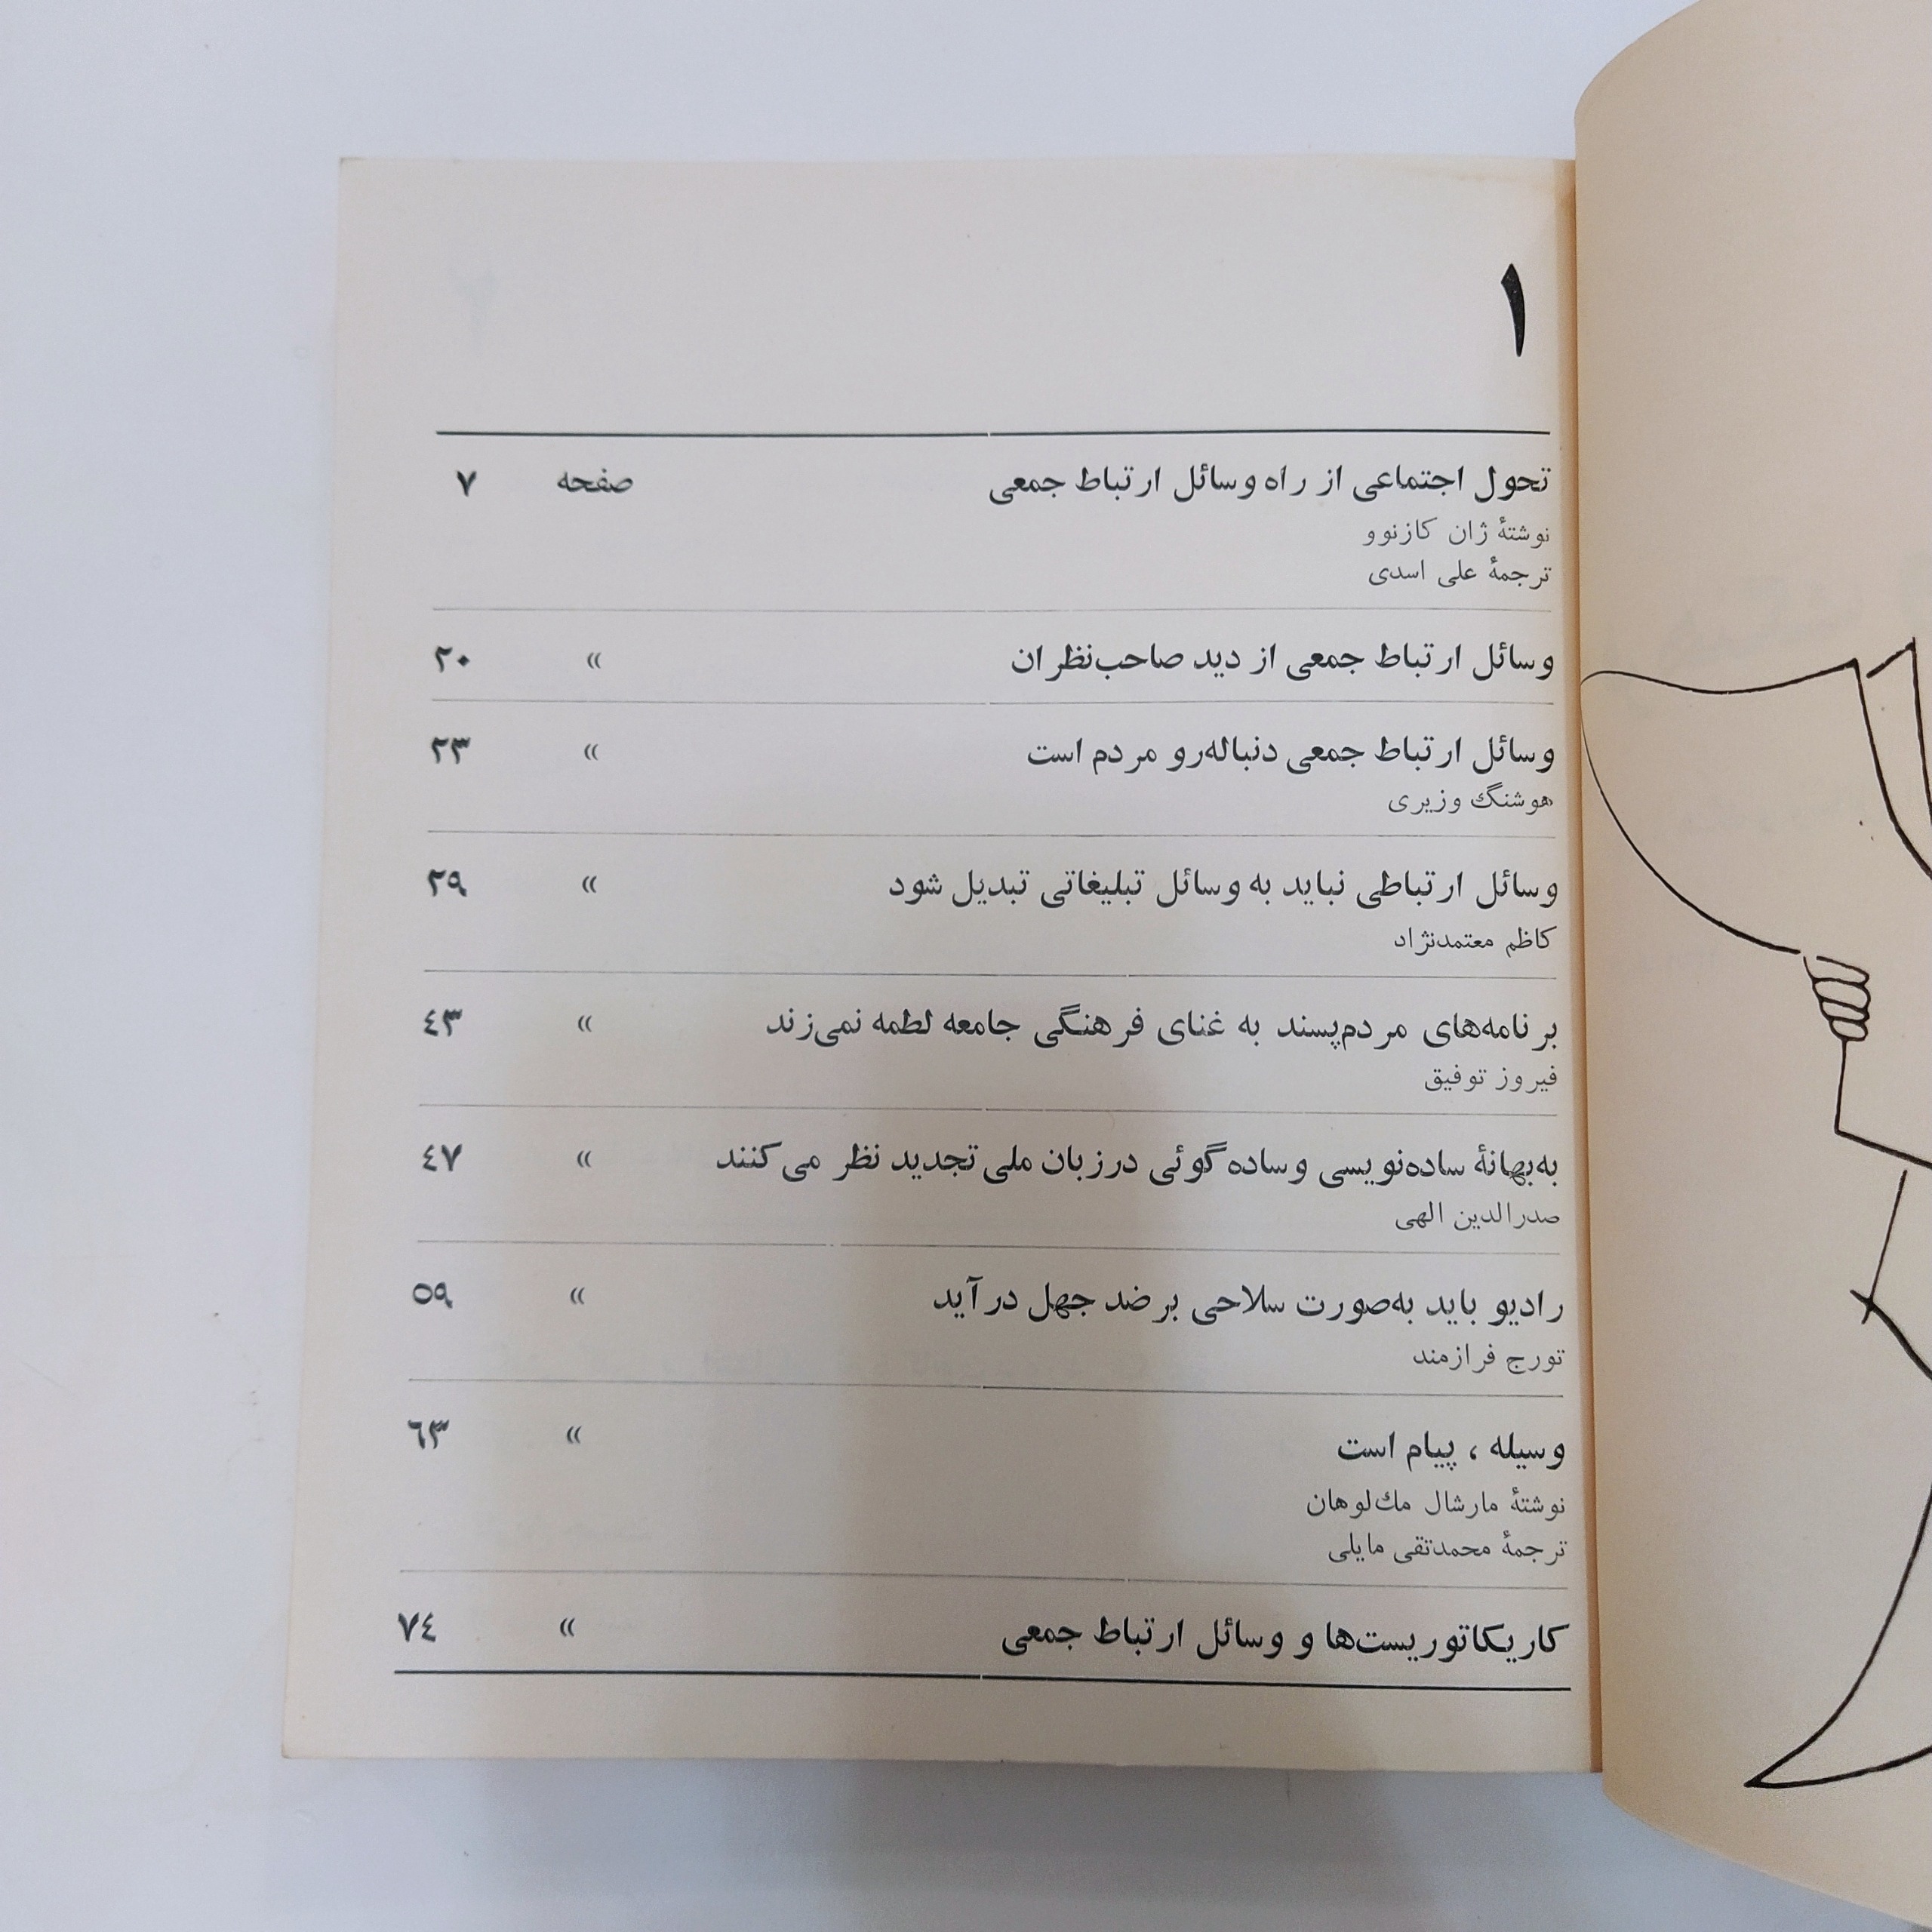 ۱
تحول اجتماعی از راه وسائل ارتباط جمعی صفحه ۷
نوشتهٔ ژان کازنوو
ترجمهٔ علی اسدی
وسائل ارتباط جمعی از دید صاحب‌نظران » ۲۰
وسائل ارتباط جمعی دنباله‌رو مردم است » ۲۳
هوشنگ وزیری
وسائل ارتباطی نباید به وسائل تبلیغاتی تبدیل شود » ۲۹
کاظم معتمدنژاد
برنامه‌های مردم‌پسند به غنای فرهنگی جامعه لطمه نمی‌زند » ٤۳
فیروز توفیق
به‌بهانهٔ ساده‌نویسی وساده‌گوئی درزبان ملی تجدید نظر می‌کنند » ٤۷
صدرالدین الهی
رادیو باید به‌صورت سلاحی برضد جهل درآید » ٥۹
تورج فرازمند
وسیله ، پیام است » ٦۳
نوشتهٔ مارشال مك‌لوهان
ترجمهٔ محمدتقی مایلی
کاریکاتوریست‌ها و وسائل ارتباط جمعی » ۷٤